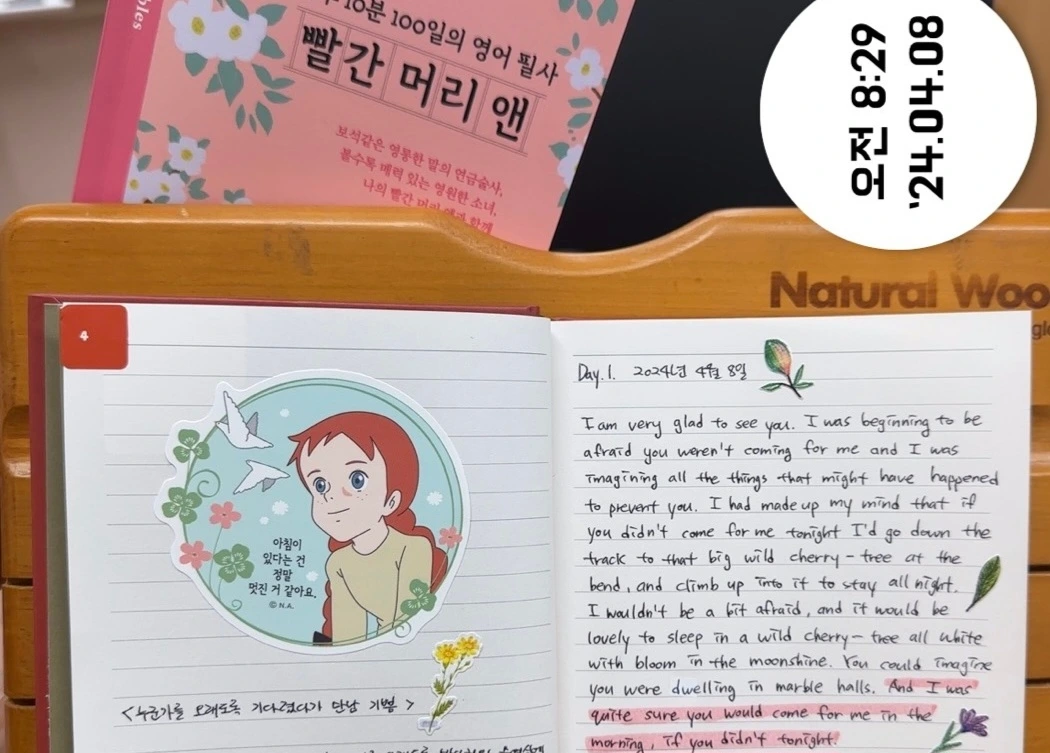 bles
10분 100일의 영어 필사
빨간 머리 앤
보석같은 영롱한 말의 연금술사,
볼수록 매력 있는 영원한 소녀,
나의 빨간 머리 앤과 함께
오전 8:29
'24.04.08
Natural Woo
4
아침이
있다는 건
정말
멋진 거 같아요.
© N.A.
<누군가를 오래도록 기다렸다가 만남 기쁨>
Day.1. 2024년 4월 8일
I am very glad to see you. I was beginning to be
afraid you weren't coming for me and I was
imagining all the things that might have happened
to prevent you. I had made up my mind that if
you didn't come for me tonight I'd go down the
track to that big wild cherry-tree at the
bend, and climb up into it to stay all night.
I wouldn't be a bit afraid, and it would be
lovely to sleep in a wild cherry-tree all white
with bloom in the moonshine. You could imagine
you were dwelling in marble halls. And I was
quite sure you would come for me in the
morning, if you didn't tonight.